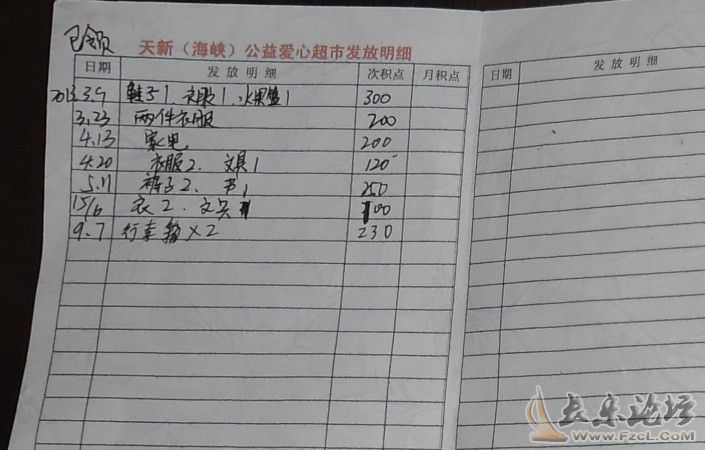 已领
天新（海峡）公益爱心超市发放明细
日期 发放明细 次积点 月积点
2013.3.9 鞋子1、衣服1、水果篮1 300
3.23 两件衣服 200
4.13 家电 200
4.20 衣服2、文具1 120
5.11 裤子2、书1 250
15/6 衣2、文具1 100
9.7 行李箱×2 230
日期 发放明细
长乐论坛
www.FzcL.Com